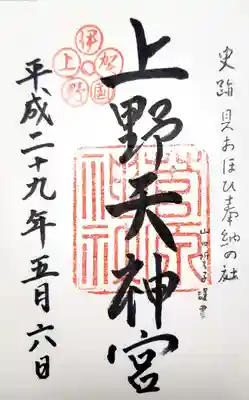 史跡 貝おほひ奉納の社
上野天神宮
菅原
神社
伊賀国上野
平成二十九年五月六日